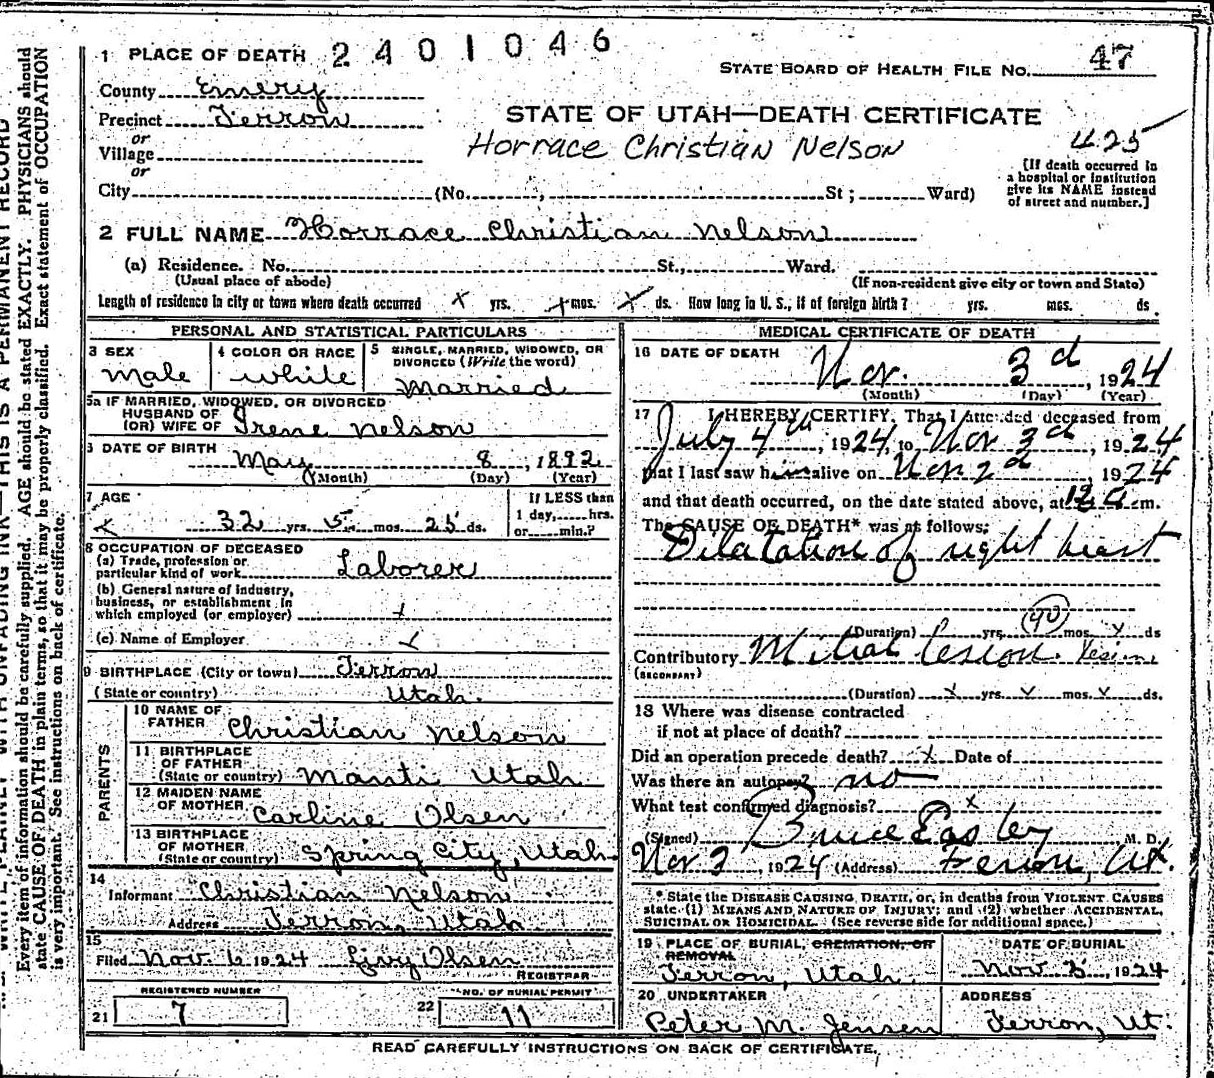 1 PLACE OF DEATH 2 4 0 1 0 4 6
STATE BOARD OF HEALTH FILE NO. 47
County Emery
Precinct Ferron
STATE OF UTAH—DEATH CERTIFICATE
or
Village
Horrace Christian Nelson
425
or
City (No. , St ; Ward)
[If death occurred in
a hospital or institution
give its NAME instead
of street and number.]
2 FULL NAME Horrace Christian Nelson
(a) Residence. No. St., Ward.
(Usual place of abode) (If non-resident give city or town and State)
Length of residence in city or town where death occurred x yrs. x mos. x ds. How long in U. S., if of foreign birth? yrs. mos. ds.
PERSONAL AND STATISTICAL PARTICULARS
3 SEX
Male
4 COLOR OR RACE
White
5 SINGLE, MARRIED, WIDOWED, OR
DIVORCED (Write the word)
Married
5a IF MARRIED, WIDOWED, OR DIVORCED
HUSBAND OF
(OR) WIFE OF Irene Nelson
6 DATE OF BIRTH
May 8, 1892
(Month) (Day) (Year)
7 AGE
32 yrs. 5 mos. 25 ds.
If LESS than
1 day, hrs.
or min.?
8 OCCUPATION OF DECEASED
(a) Trade, profession or
particular kind of work Laborer
(b) General nature of industry,
business, or establishment in
which employed (or employer) x
(c) Name of Employer x
9 BIRTHPLACE (City or town) Ferron
(State or country) Utah.
PARENTS
10 NAME OF
FATHER Christian Nelson
11 BIRTHPLACE
OF FATHER
(State or country) Manti Utah
12 MAIDEN NAME
OF MOTHER Carline Olsen
13 BIRTHPLACE
OF MOTHER
(State or country) Spring City, Utah.
14
Informant Christian Nelson
Address Ferron, Utah
15
Filed Nov. 6 1924 Livy Olsen
REGISTRAR
REGISTERED NUMBER
21 7
NO. OF BURIAL PERMIT
22 11
MEDICAL CERTIFICATE OF DEATH
16 DATE OF DEATH
Nov. 3d, 1924
(Month) (Day) (Year)
17 I HEREBY CERTIFY, That I attended deceased from
July 4th, 1924, to Nov 3d, 1924
that I last saw him alive on Nov 2d 1924
and that death occurred, on the date stated above, at 12 a m.
The CAUSE OF DEATH* was as follows:
Dilatation of right heart
90
(Duration) yrs. mos. ds
Contributory Mitral lesion.
(SECONDARY)
(Duration) x yrs. mos. ds.
18 Where was disease contracted
if not at place of death?
Did an operation precede death? x Date of
Was there an autopsy? no
What test confirmed diagnosis? x
(Signed) Bruce Easley M. D.
Nov 3, 1924 (Address) Ferron, Ut.
* State the DISEASE CAUSING DEATH, or, in deaths from VIOLENT CAUSES
state (1) MEANS AND NATURE OF INJURY; and (2) whether ACCIDENTAL,
SUICIDAL OR HOMICIDAL. (See reverse side for additional space.)
19 PLACE OF BURIAL, CREMATION, OR
REMOVAL
Ferron, Utah.
DATE OF BURIAL
Nov 5, 1924
20 UNDERTAKER
Peter M. Jensen
ADDRESS
Ferron, Ut.
READ CAREFULLY INSTRUCTIONS ON BACK OF CERTIFICATE.
WRITE PLAINLY WITH UNFADING INK—THIS IS A PERMANENT RECORD
Every item of information should be carefully supplied. AGE should be stated EXACTLY. PHYSICIANS should
state CAUSE OF DEATH in plain terms, so that it may be properly classified. Exact statement of OCCUPATION
is very important. See instructions on back of certificate.